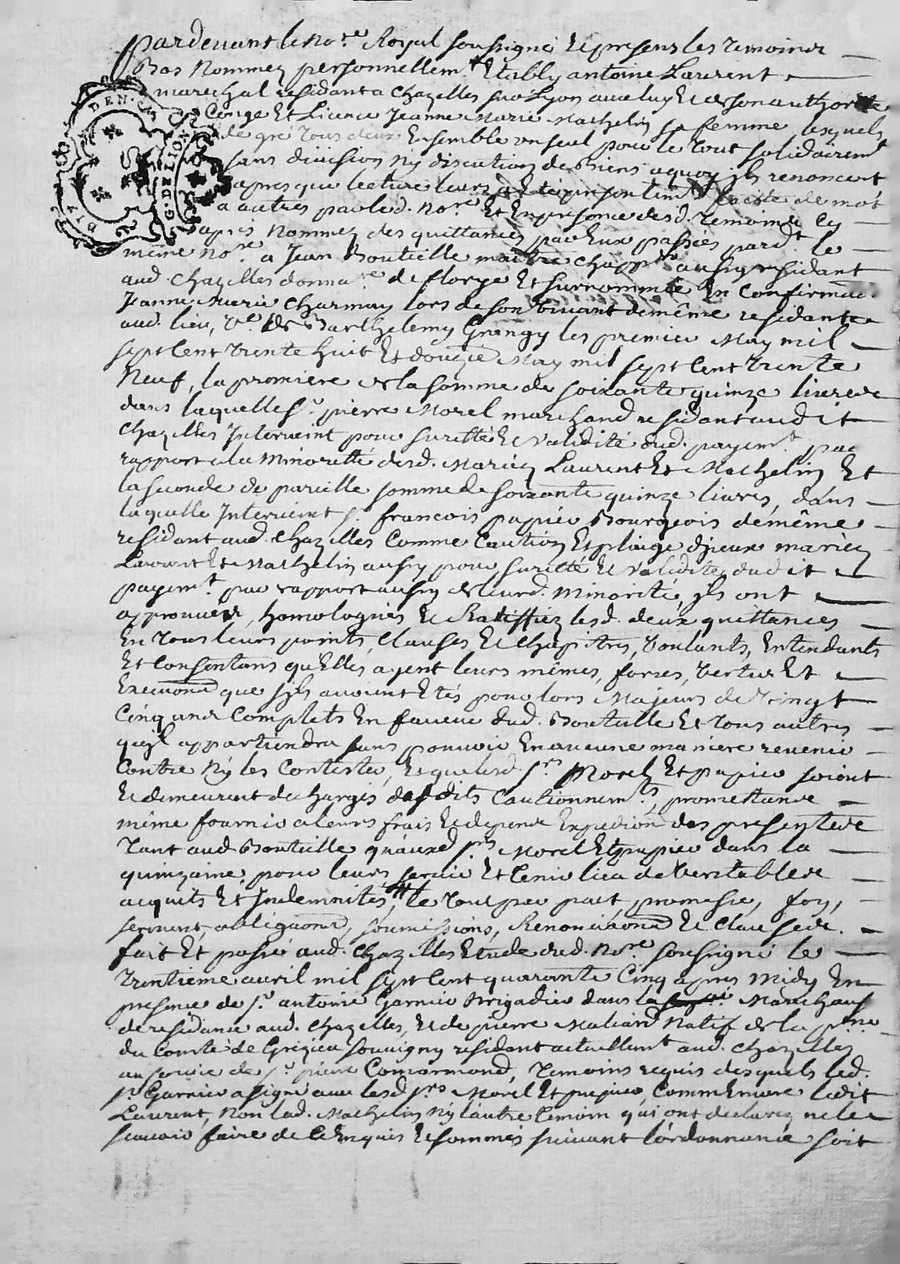 pardevant le no.re Royal soussigné et presens les temoins
Bas Nommez personnellem.t Etably antoine Laurent
marechal residant a Chazelles sur Lyon avec luy Et de son authorité
Conge Et Licence Jeanne Marie Mathelin sa femme, lesquels
de gré tous deux Ensemble un seul pour le tout solidairem.t
sans division Ny discution de biens a quoy ils renoncent
apres que lecture leurs a été faite de mot
a autres par led. no.re Et En presence desd. temoins Cy
apres Nommez des quittances par Eux passées pard.t le
même No.re a Jean Bouteille maitre chapp.er aussy residant
aud. chazelles donna.re de florge Et surnommée En Confirma.on
Jeanne Marie Charmay lors de son vivant de même residante
aud. lieu, v.e de Barthelemy Grangy les premier May mil
sept Cent trente huit Et douzie May mil sept Cent trente
Neuf, la premiere de la somme de soixante quinze livres
dans laquelle s.r pierre Morel marchand residant audit
Chazelles Intervient pour suretté Et validité dud. payem.t par
rapport a la Minorité desd. Mariez Laurent Et Mathelin Et
la seconde de pareille somme de soixante quinze livres, dans
laquelle Intervient s.r francois papier Bourgeois de même
residant aud. Chazelles Comme Caution Et pleige d'jceux mariez
Laurent Et Mathelin aussy pour suretté Et validité dudit
payem.t par rapport aussy de leurd. Minorité, ils ont
approuvés, homologués Et Ratiffiez lesd. deux quittances
En tous leurs points, Clauses Et Chapitres, Voulants, Entendants
Et Consentans qu'Elles ayent leurs mêmes, forces, vertus Et
que s'jls avoient Etés pour lors Majeurs de vingt
Cinq ans Complets En faveur dud. Bouteille Et tous autres
qu'jl appartiendra sans pouvoir En aucune maniere revenir
Contre Ny les Contester, Et que lesd. s.rs Morel Et papier soient
Et demeurent dechargés desdits Cautionnem.ts, promettans
même fournir a leurs frais Et depens Expedi.on des presentes
tant aud. Bouteille qu'auxd. s.rs Morel Et papier dans la
quinzaine pour leurs servir Et tenir lieu de veritables
acquits Et Indemnités, le tout par pact promesse, foy,
serment, obliga.ons, soumissions, Renoncia.ons Et Clauses.
fait Et passé aud. Chazelles Etude dud. No.re soussigné le
trentieme avril mil sept Cent quarante Cinq apres Midy En
presence de s.r antoine Garnier Brigadier dans la Marechaus.
de residance aud. Chazelles, Et de pierre Maliard Natif de la p.sse
du Comté de Grezieu souvigny residant actuellem.t aud. Chazelles
au service de s.r pierre Comarmond, temoins requis desquels led.
s.r Garnier a signé avec lesd. s.rs Morel Et papier, Comme Encore ledit
Laurent, Non lad. Mathelin Ny l'autre temoin qui ont declarez ne le
scavoir faire de Ce Enquis Et sommés suivant l'ordonnance soit
G. DE LION
DEN.